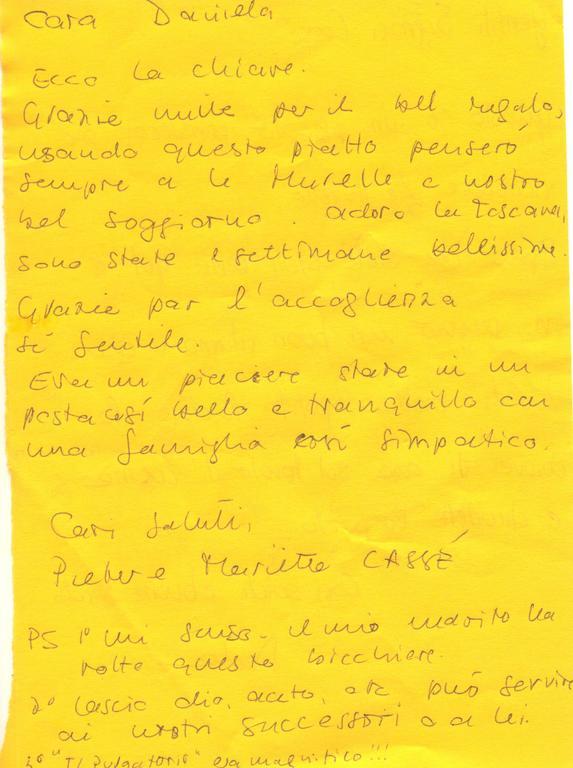 Cara Daniela
Ecco la chiave.
Grazie mille per il bel regalo,
usando questo piatto penseró
sempre a le Murelle e nostro
bel soggiorno. adoro la Toscana,
sono state 2 settimane bellissime.
Grazie par l'accoglienza
sí gentile
Era un piaciere stare in un
posto cosí bello e tranquillo con
una famiglia cosí simpatico.
Cari saluti,
Pieter e Mariette CASSÉ
PS 1º mi scusa. il mio marito ha
rotto questo bicchiere.
2º lascio olio, aceto, etc può servire
ai nostri successori o a lei.
3º "Il Purgatorio" era magnifico!!!